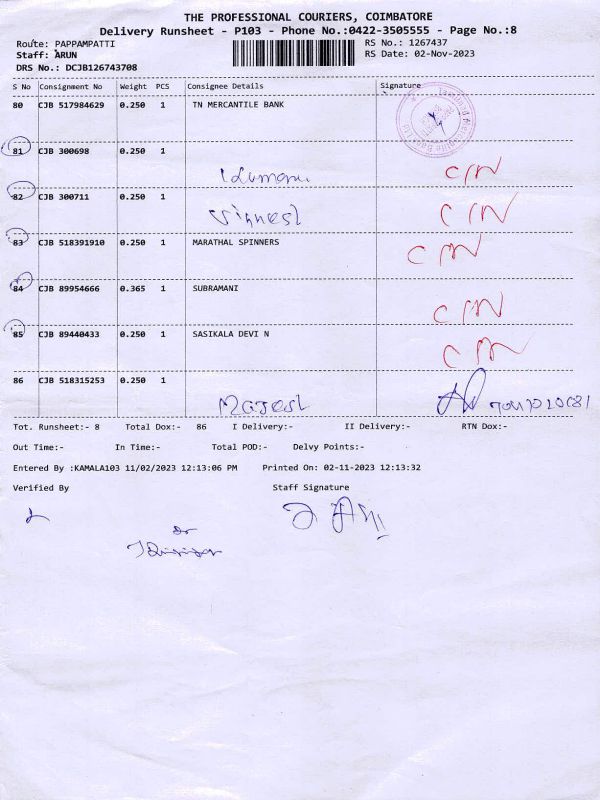 THE PROFESSIONAL COURIERS, COIMBATORE
Delivery Runsheet - P103 - Phone No.:0422-3505555 - Page No.:8
Route: PAPPAMPATTI RS No.: 1267437
Staff: ARUN RS Date: 02-Nov-2023
DRS No.: DCJB126743708
S No Consignment No Weight PCS Consignee Details Signature
80 CJB 517984629 0.250 1 TN MERCANTILE BANK
81 CJB 300698 0.250 1
82 CJB 300711 0.250 1 Vignesh
83 CJB 518391910 0.250 1 MARATHAL SPINNERS
84 CJB 89954666 0.365 1 SUBRAMANI
85 CJB 89440433 0.250 1 SASIKALA DEVI N
86 CJB 518315253 0.250 1
Tot. Runsheet:- 8 Total Dox:- 86 I Delivery:- II Delivery:- RTN Dox:-
Out Time:- In Time:- Total POD:- Delvy Points:-
Entered By :KAMALA103 11/02/2023 12:13:06 PM Printed On: 02-11-2023 12:13:32
Verified By Staff Signature